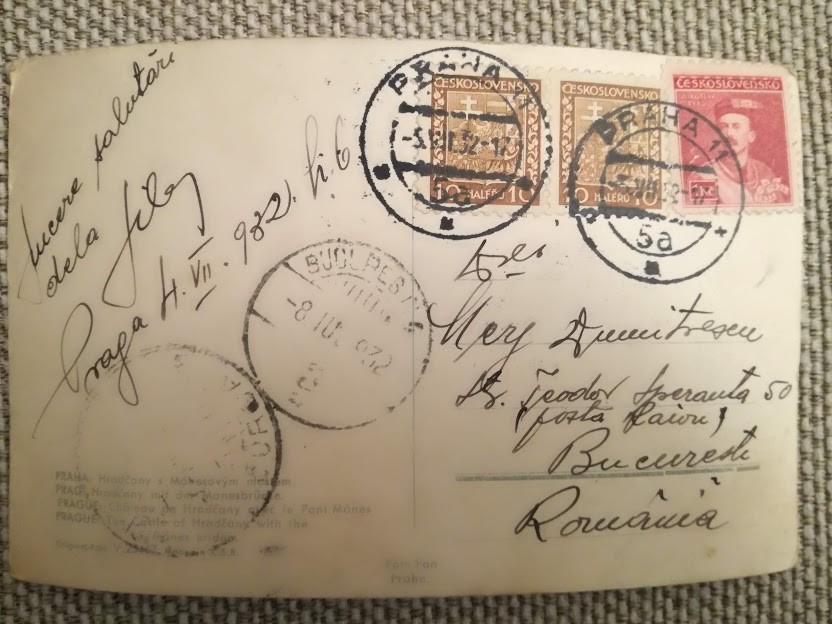 Sincere salutări
dela
Praga 4. VII. 932.
PRAHA 11
-5.VII.32-17
5a
ČESKOSLOVENSKO
10 HALÉŘŮ 10
ČESKOSLOVENSKO
10 HALÉŘŮ 10
ČESKOSLOVENSKO
PRAHA 11
5a
BUCUREȘTI
-8 IUL 932
D-rei
Mery Dumitrescu
Str. Teodor Speranta 50
(fosta Raion)
București
România
PRAHA: Hradčany s Mánesovým mostem.
PRAG: Hradčany mit der Manesbrücke.
PRAGUE: Château de Hradčany avec le Pont Mánes
PRAGUE: The Castle of Hradčany with the
Mánes bridge.
Fom Fan
Praha.